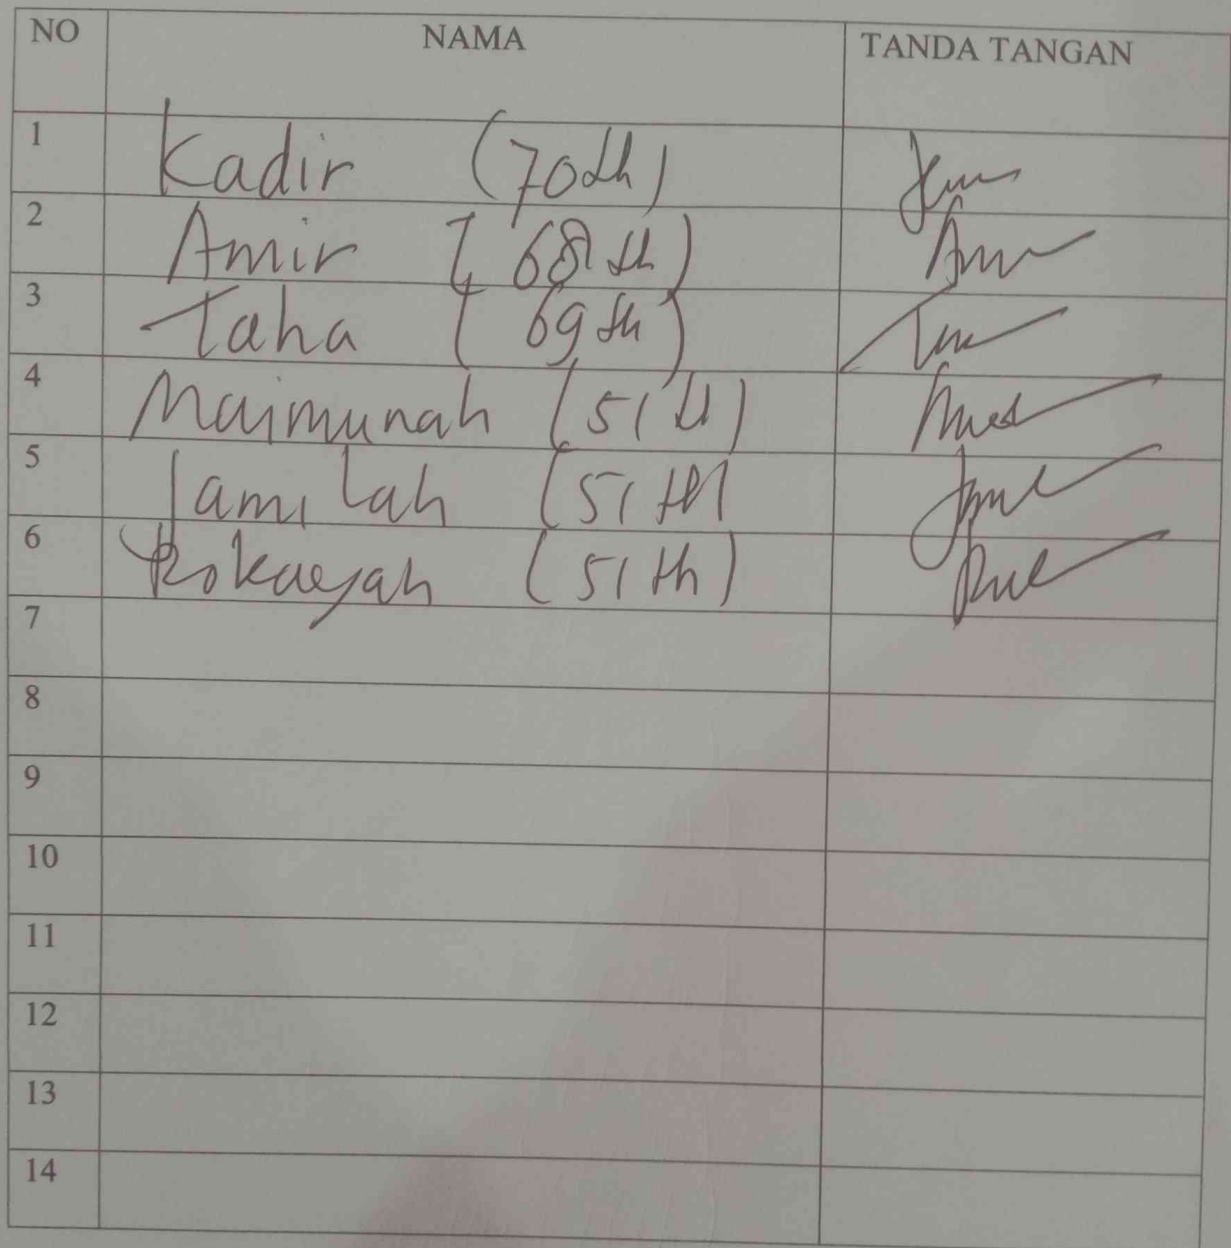 NO NAMA TANDA TANGAN
1 Kadir (70th)
2 Amir (68th)
3 Taha (69th)
4 Maimunah (51th)
5 Jamilah (51th)
6 Rokaeyah (51th)
7
8
9
10
11
12
13
14